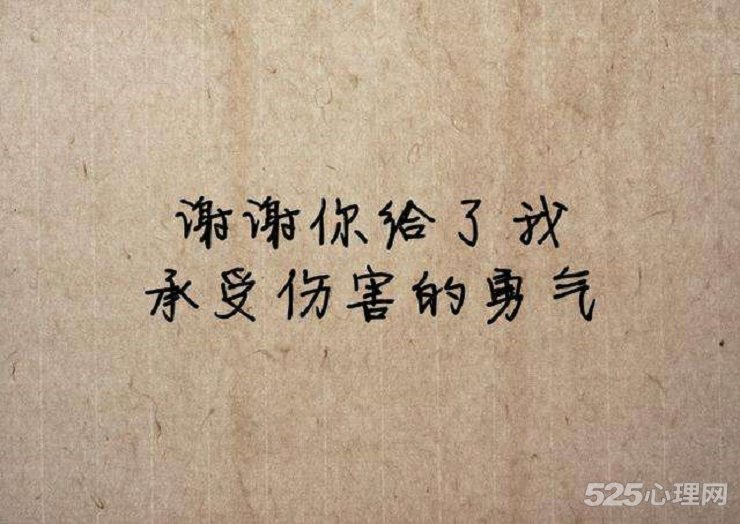 谢谢你给了我
承受伤害的勇气
525心理网